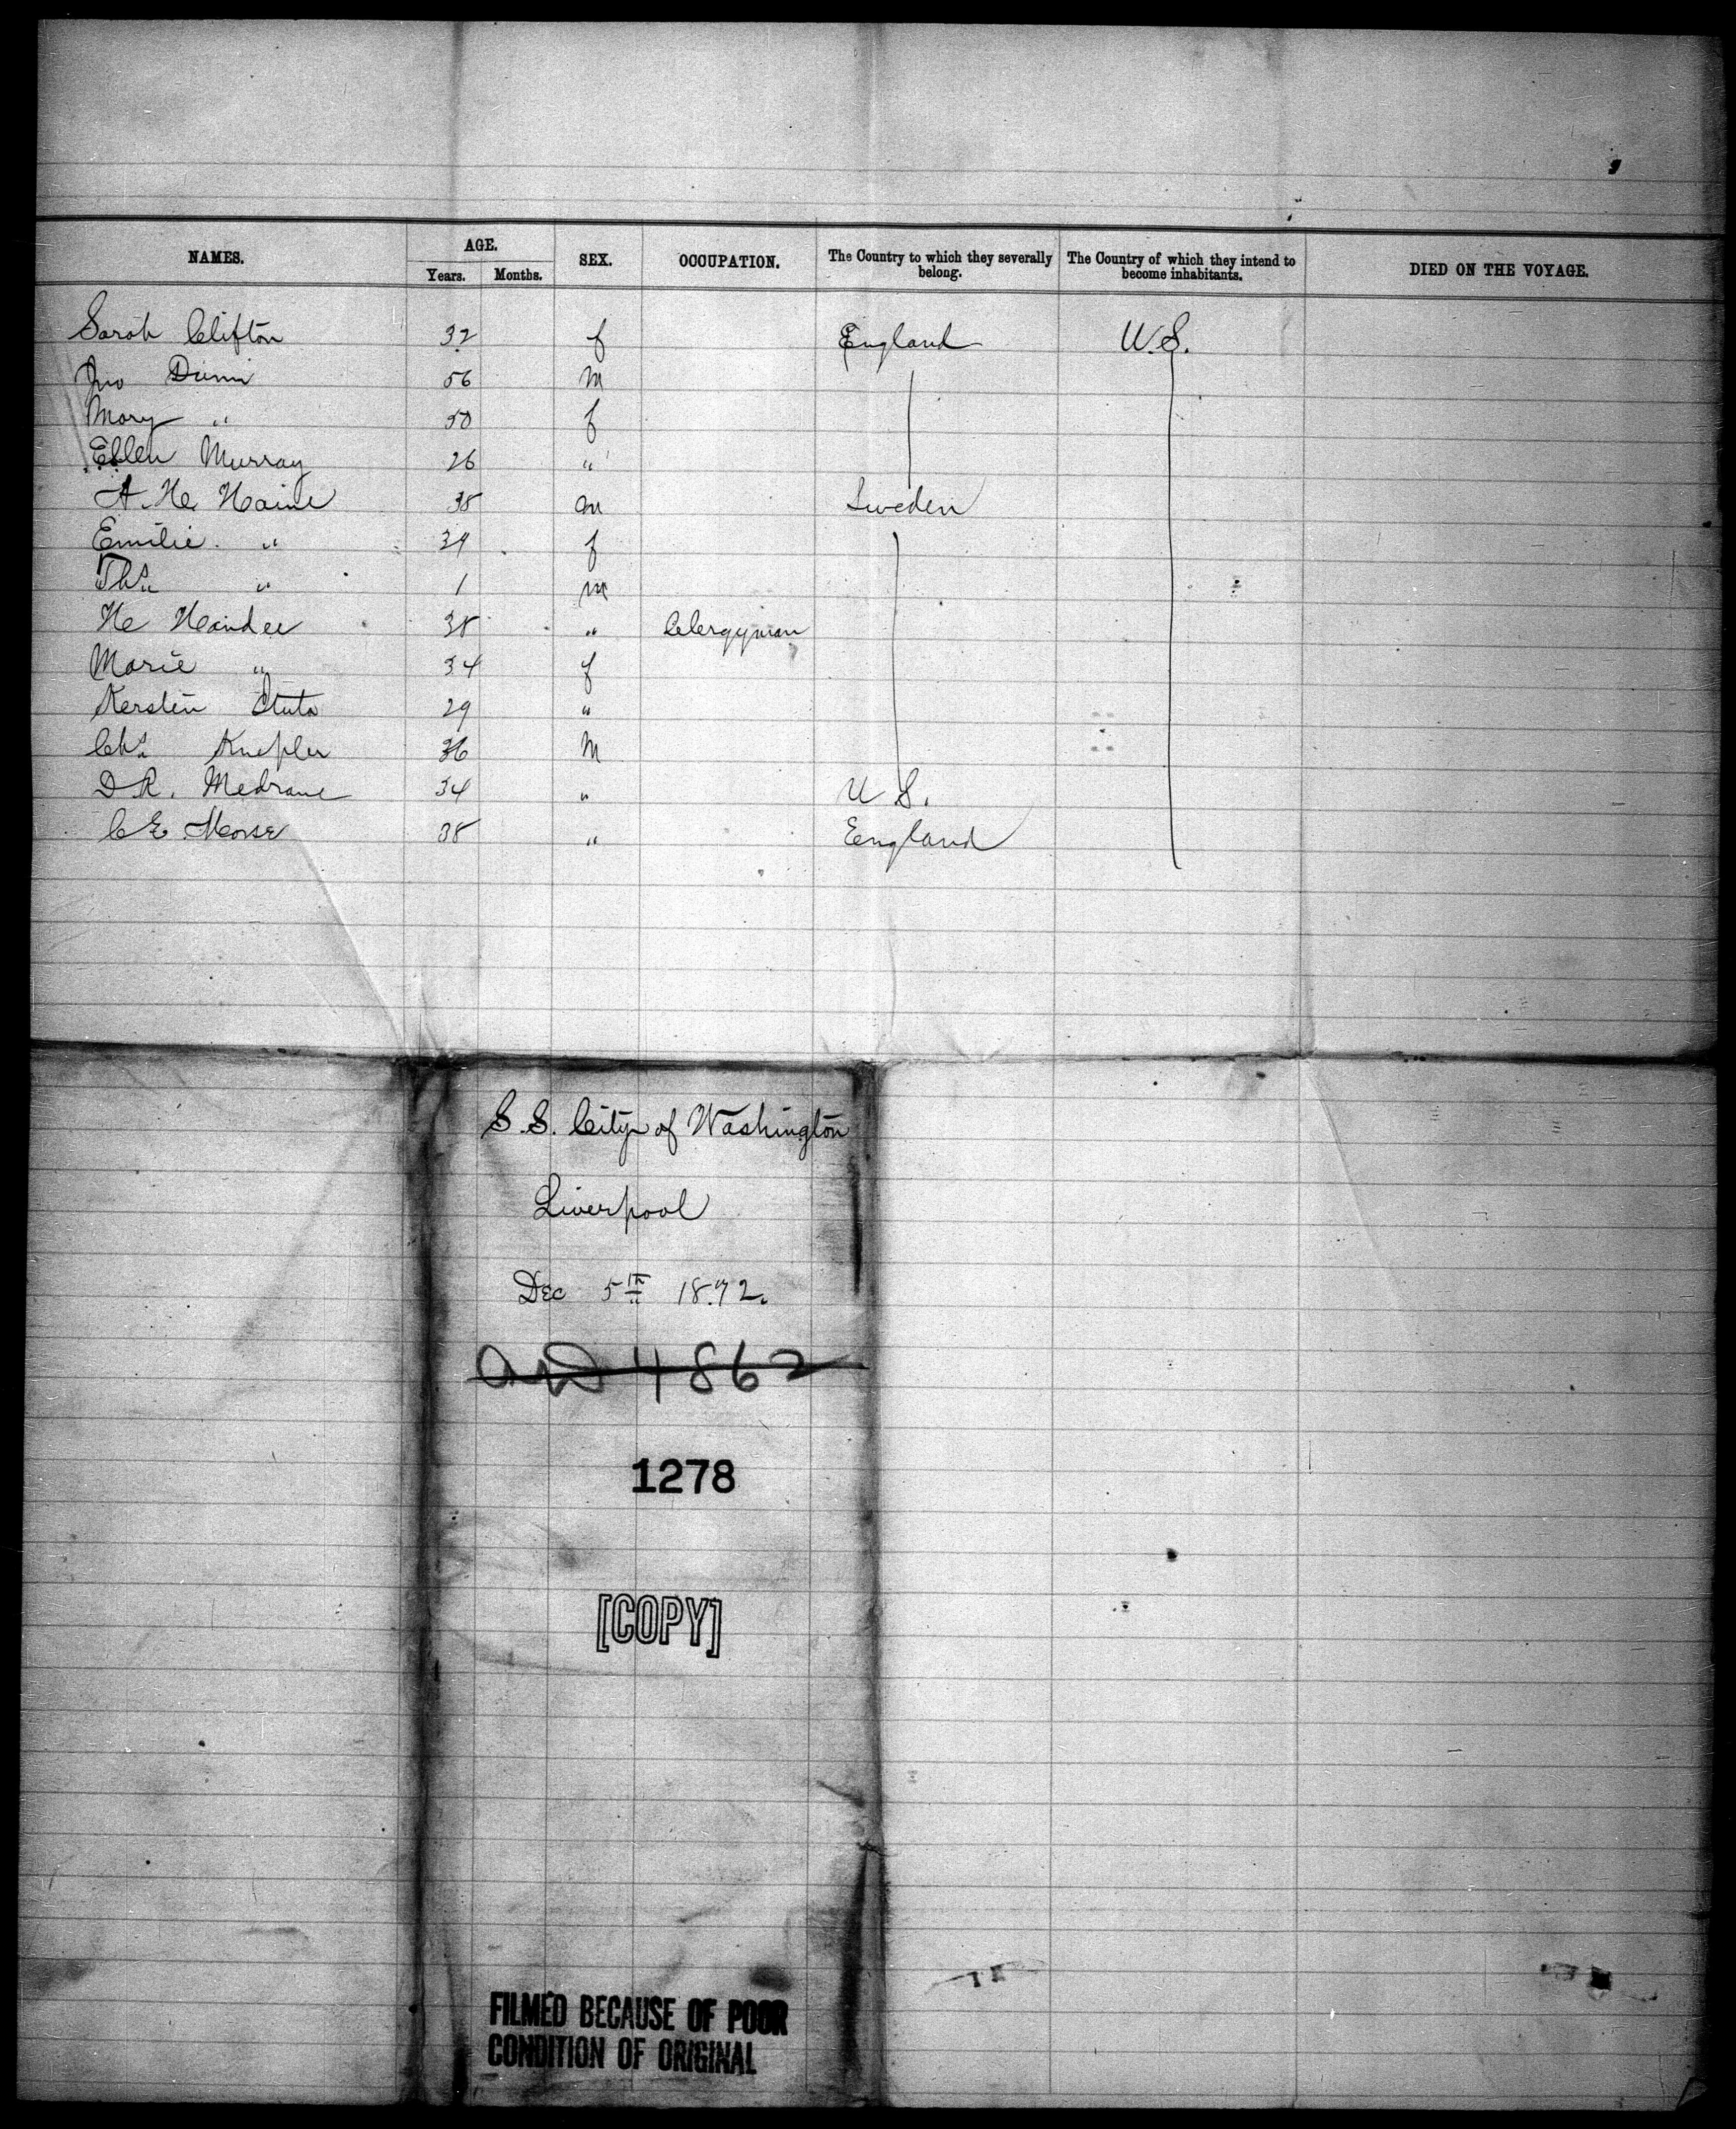 NAMES. AGE. SEX. OCCUPATION. The Country to which they severally belong. The Country of which they intend to become inhabitants. DIED ON THE VOYAGE.
Years. Months.
Sarah Clifton 32 f England U.S.
Jno Dunn 56 m
Mary " 50 f
Ellen Murray 26 "
A. H. Haine 38 m Sweden
Emilie " 34 f
Ths " 1 m
H Handee 38 " Clergyman
Marie " 34 f
Kersten 29 "
Chs Knepler 36 M
D R. Medrane 34 " U S.
C E Morse 38 " England
S.S. City of Washington
Liverpool
Dec 5th 1872.
4862
1278
[COPY]
FILMED BECAUSE OF POOR
CONDITION OF ORIGINAL